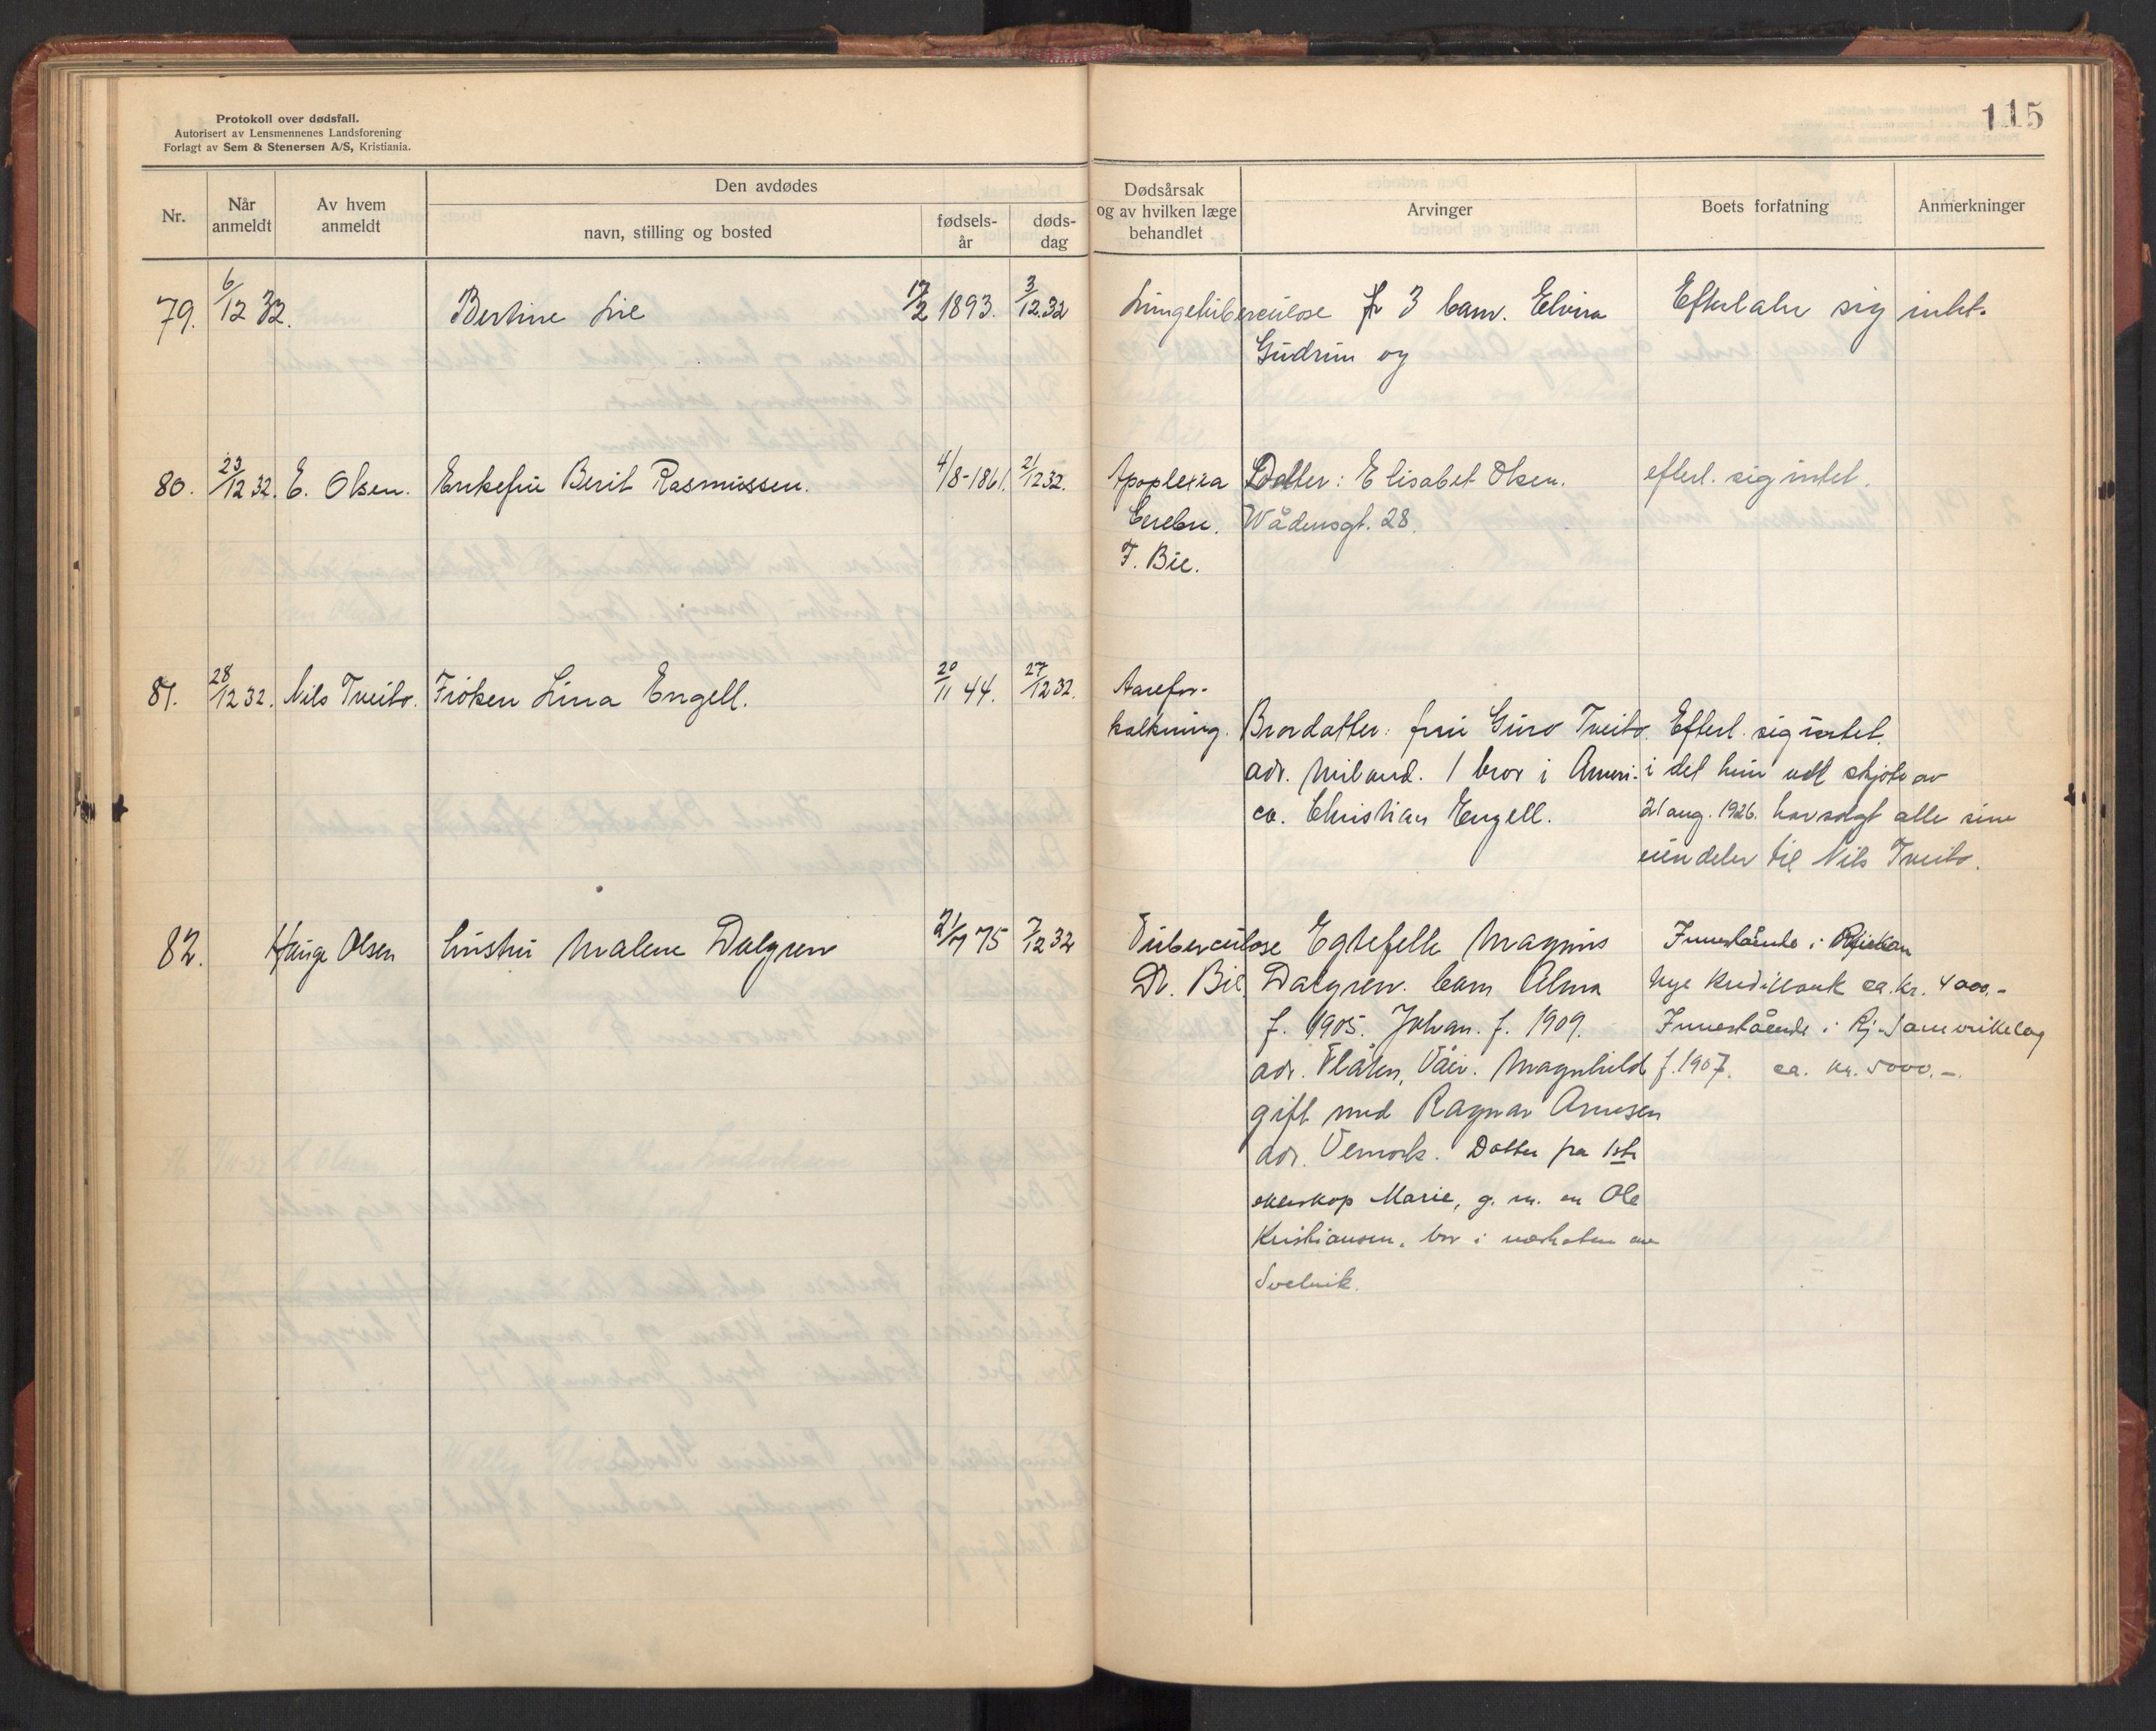 Protokoll over dødsfall.
Autorisert av Lensmennenes Landsforening
Forlagt av Sem & Stenersen A/S, Kristiania.
115
Nr.
Når anmeldt
Av hvem anmeldt
Den avdødes
navn, stilling og bosted
fødsels-år
døds-dag
Dødsårsak
og av hvilken læge
behandlet
Arvinger
Boets forfatning
Anmerkninger
79. 6/12 32. Bertine Lie 17/2 1893. 3/12.32 Lungetuberculose 3 barn. Elvira Efterlater sig intet.
Gudrun og
80. 23/12 32. E. Olsen. Enkefru Berit Rasmussen. 4/8-1861. 21/12 32. Apoplexia Datter: Elisabet Olsen. efterl. sig intet.
Cerebri. Wådensgt. 28.
F. Bie.
81. 28/12 32. Nils Tveito. Frøken Lina Engell. 20/11 44. 27/12 32. Aarefor-
kalkning. Brordatter: fru Guro Tveito. Efterl. sig intet,
adr. Miland. 1 bror i Ameri- i det hun ved skjøte av
ca. Christian Engell. 21 aug. 1926. har solgt alle sine
eiendeler til Nils Tveito.
82. Hauge Olsen hustru Malene Dalgren 21/7 75 7/12 32 Tuberculose Egtefelle Magnus Innestående i Rjukan
Dr. Bie. Dalgren. barn Alma Nye Kreditbank ca. kr. 4000,-
f. 1905. Johan. f. 1909. Innestående i Rj. Samvirkelag
adr. Flåten, Våer. Magnhild f. 1907. ca. kr. 5000.-
gift med Ragnar Arnesen
adr. Vemork. Datter fra 1ste
ekteskap Marie, g. m. en Ole
Kristiansen, bor i nærheten av
Svelvik.